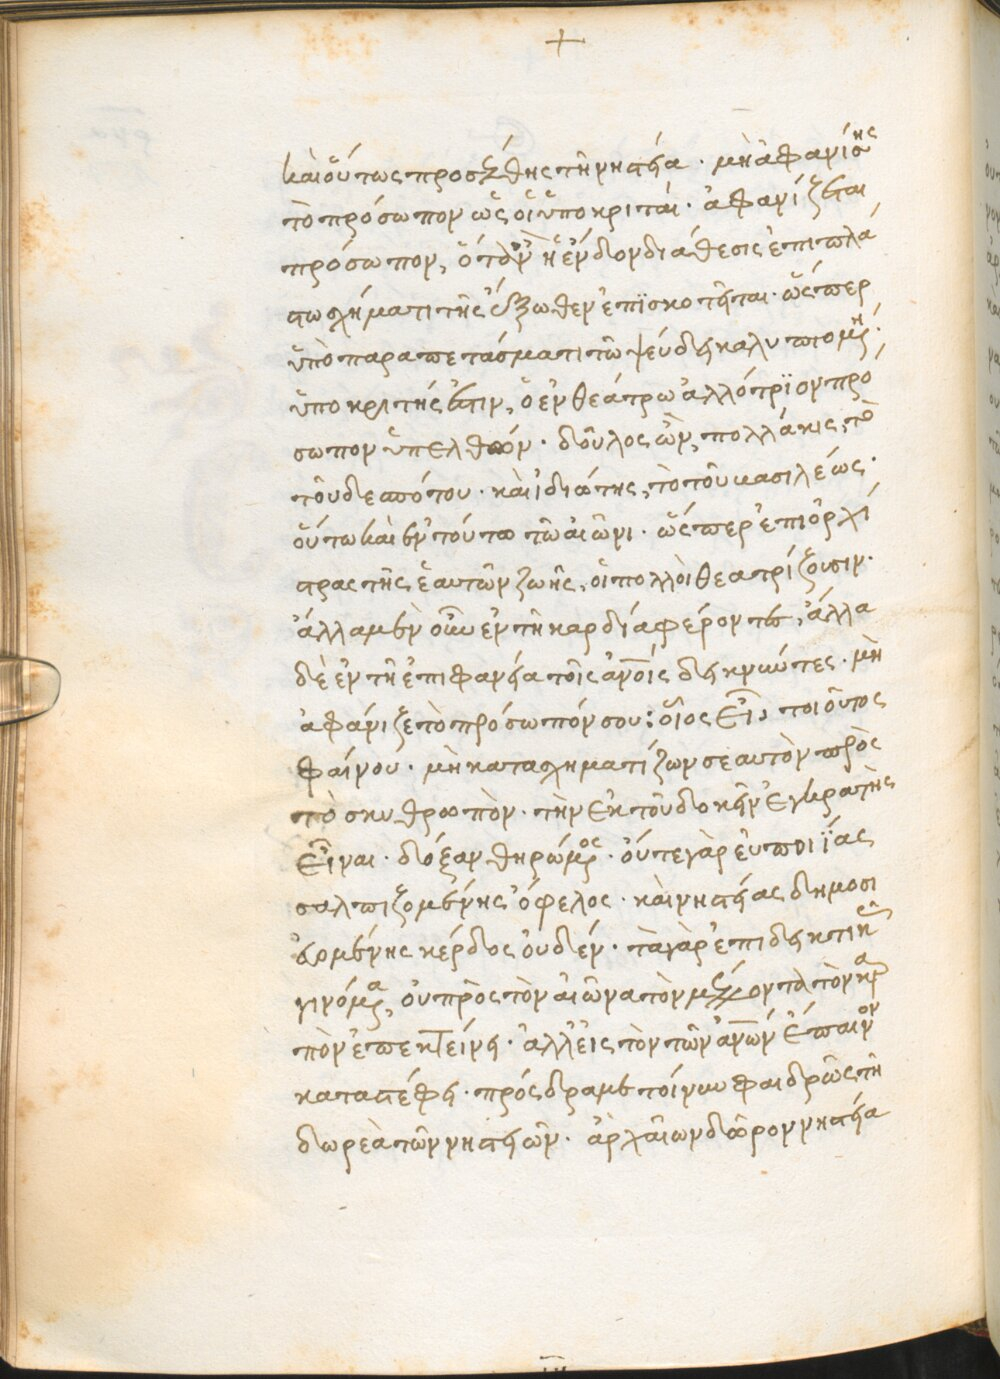 +
καὶ οὕτως προσέλθης τῆ νηστεία· μὴ ἀφανίσης
τὸ πρόσωπον ὡς οἱ ὑποκριταί· ἀφανίζεται
πρόσωπον, ὅταν ἡ ἔνδον διάθεσις ἐπιπλά
στω σχήματι τῆς ἔξωθεν ἐπϊσκοτῆται· ὥσπερ
ὑπὸ παραπετάσματι τῶ ψεύδει καλυπτομένη·
ὑποκριτής ἐστιν, ὁ ἐν θεάτρω ἀλλότρϊον πρό
σωπον ὑπελθών· δοῦλος ὢν, πολλάκις, τὸ
τοῦ δεσπότου· καὶ ἰδιώτης, τὸ τοῦ βασιλέως·
οὕτω καὶ ἐν τούτω τῶ αἰῶνι· ὥσπερ ἐπὶ ὀρχή
στρας τῆς ἑαυτῶν ζωῆς, οἱ πολλοὶ θεατρίζουσιν·
ἄλλα μὲν οὖν ἐν τῆ καρδία φέροντες, ἄλλα
δὲ ἐν τῆ ἐπιφανεία τοῖς ἀνοις δεικνύντες· μὴ
ἀφάνιζε τὸ πρόσωπόν σου: οἷος εἶ, τοιοῦτος
φαίνου· μὴ κατασχηματίζων σεαυτὸν πρὸς
τὸ σκυθρωπὸν· τὴν ἐκ τοῦ δοκεῖν ἐγκρατὴς
εἶναι· δόξαν θηρώμενος· οὔτε γὰρ εὐποιΐας
σαλπιζομένης ὄφελος· καὶ νηστείας δημοσι
ευομένης κέρδος οὐδέν· τὰ γὰρ ἐπιδεικτικῶς
γινόμενα, οὐ πρὸς τὸν αἰῶνα τὸν μέλλοντα τὸν καρ
πὸν ἐπεκτείνει· ἀλλ' εἰς τὸν τῶν ἀνων ἔπαινον
καταστρέφει· πρόσδραμε τοίνυν φαιδρῶς τῆ
δωρεᾶ τῶν νηστειῶν· ἀρχαῖον δῶρον νηστεία